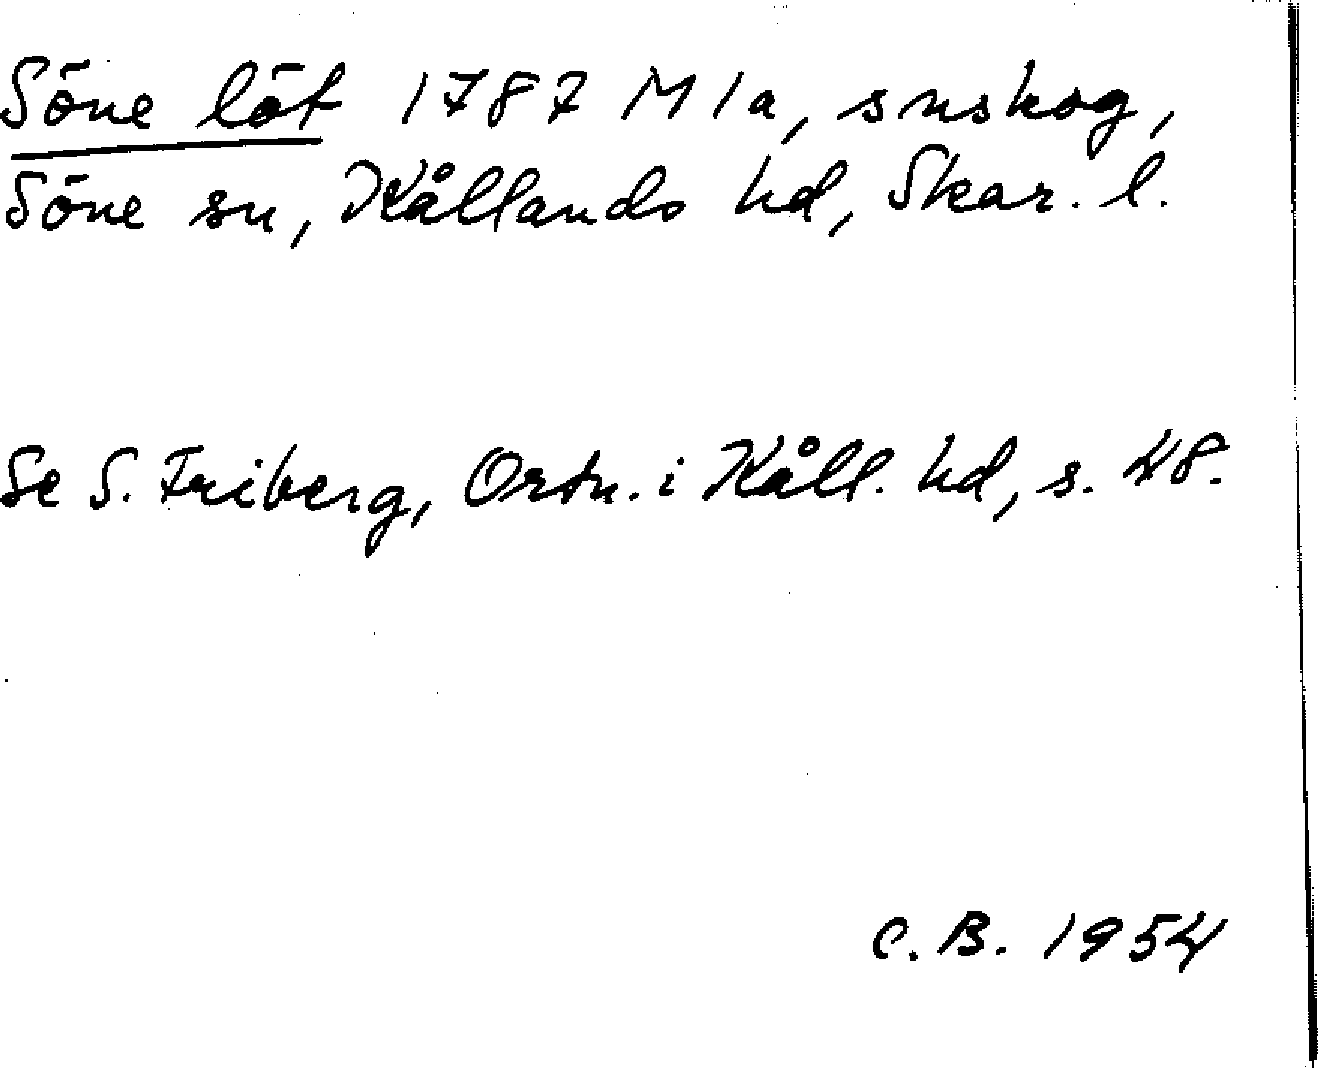 Söne löt 1787 M1a, snskog,
Söne sn, Kållands hd, Skar. l.
Se S. Friberg, Ortn. i Kåll. hd, s. 48.
C.B. 1954